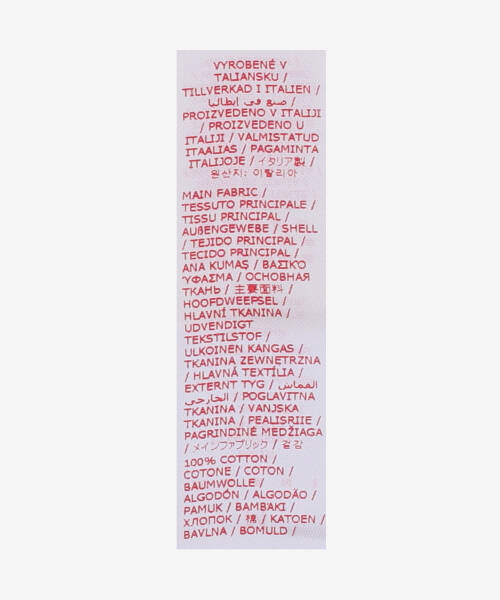 VYROBENÉ V
TALIANSKU /
TILLVERKAD I ITALIEN /
صنع في إيطاليا /
PROIZVEDENO V ITALIJI
/ PROIZVEDENO U
ITALIJI / VALMISTATUD
ITAALIAS / PAGAMINTA
ITALIJOJE / イタリア製 /
원산지: 이탈리아
MAIN FABRIC /
TESSUTO PRINCIPALE /
TISSU PRINCIPAL /
AUßENGEWEBE / SHELL
/ TEJIDO PRINCIPAL /
TECIDO PRINCIPAL /
ANA KUMAŞ / ΒΑΣΙΚΌ
ΎΦΑΣΜΑ / ОСНОВНАЯ
ТКАНЬ / 主要面料 /
HOOFDWEEFSEL /
HLAVNÍ TKANINA /
UDVENDIGT
TEKSTILSTOF /
ULKOINEN KANGAS /
TKANINA ZEWNĘTRZNA
/ HLAVNÁ TEXTÍLIA /
EXTERNT TYG / القماش
الخارجي / POGLAVITNA
TKANINA / VANJSKA
TKANINA / PEALISRIIE /
PAGRINDINĖ MEDŽIAGA
/ メインファブリック / 겉감
100% COTTON /
COTONE / COTON /
BAUMWOLLE /
ALGODÓN / ALGODÃO /
PAMUK / ΒΑΜΒΆΚΙ /
ХЛОПОК / 棉 / KATOEN /
BAVLNA / BOMULD /